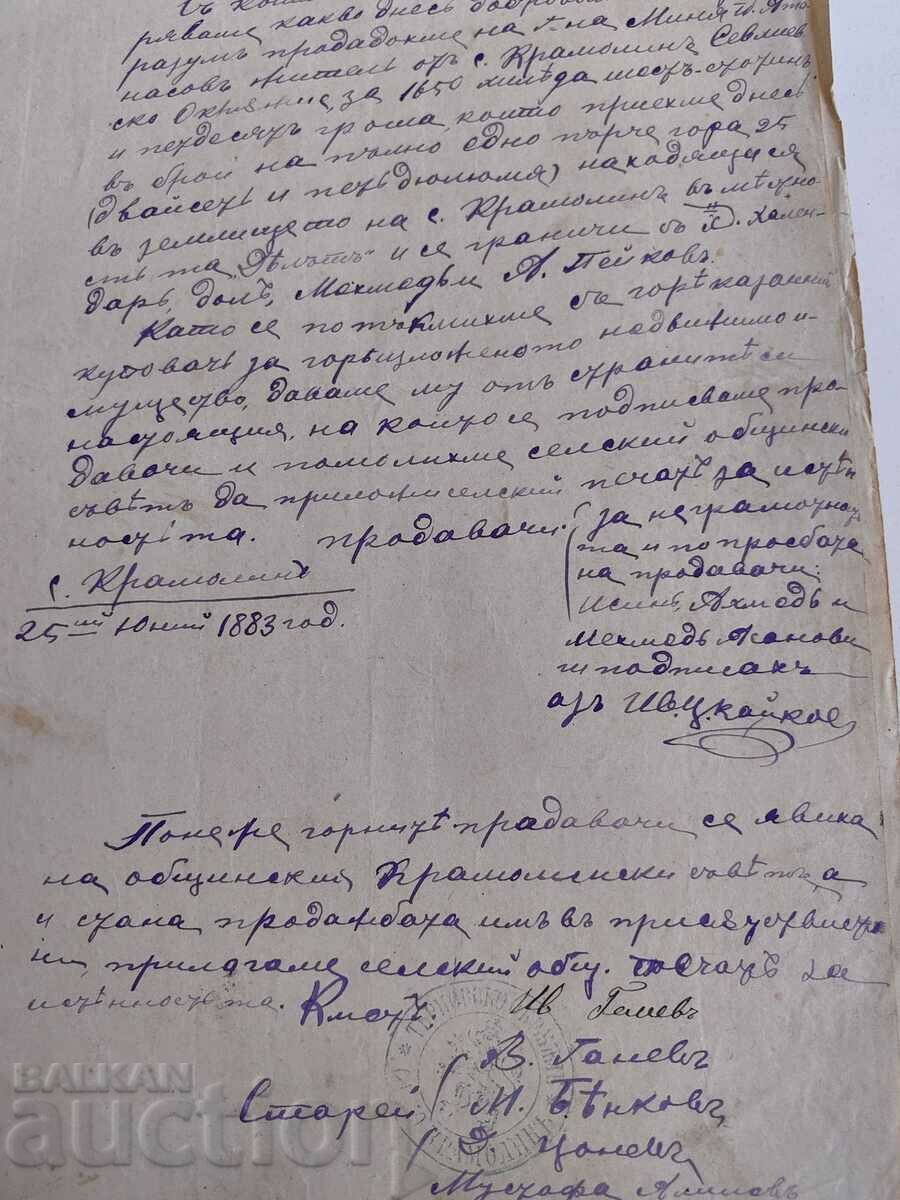 ряваме какво днесь доброво
разумъ продадохме на Г-на Миня П. Ата
насовъ жителъ отъ с. Крамолинъ Севлиев
ско Окрѫжие, за 1650 хилѣда шестъ-стотинъ
и петдесятъ гроша, които приехме днесь
въ брой на пълно едно парче гора 25
(двайсетъ и петь дюлюмя) находящися
въ землището на с. Крамолинъ въ мѣстно-
стьта и се граничи съ Х. Кален-
даръ, долъ, Мехмедъ и А. Пейковъ.
Като се потъкмихме съ горѣказаний
куповачъ за горѣизложеното недвижимо и-
мущество, даваме му отъ странитѣ си
настоящия, на който се подписваме про-
давачи и помолихме селский общински
съвѣтъ да приложи селский печатъ за истин
ностьта. продавачи:
за неграмотнос
та и по просбата
на продавачи:
Исинъ, Ахмедъ и
Мехмедъ Асанови
ги подписахъ
азъ Ив. Ц. Кайков
с. Крамолинъ
25ий Юний 1883 год.
Понеже горнитѣ продавачи се явиха
на общинский Крамолински съвѣтъ, а
и стана продажбата имъ въ присѫтствието
ни, прилагаме селский общ. печатъ за
истинностьта. Кметъ: Ив Гешевъ
В. Ганевъ
Старей М. Бѣнковъ
Д. Цоневъ
Мустафа
BALKAN
Auction